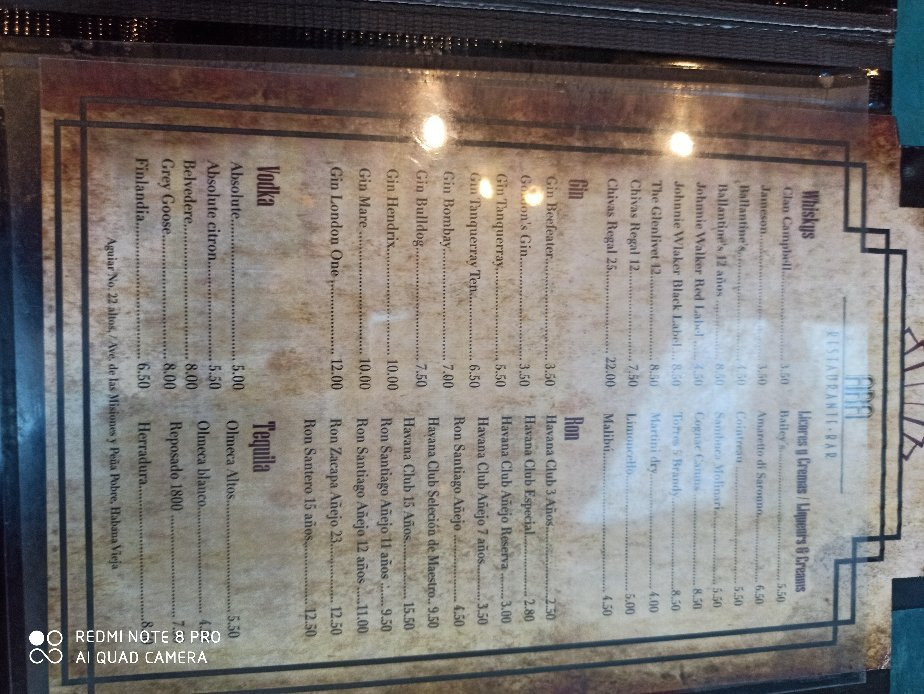 RESTAURANTE-BAR
Whiskys
Clan Campbell 3.50
Jameson 3.50
Ballantine's 4.50
Ballantine's 12 años 8.50
Johnnie Walker Red Label 4.50
Johnnie Wlaker Black Label 8.50
The Glenlivet 12 8.50
Chivas Regal 12 7.50
Chivas Regal 25 22.00
Gin
Gin Beefeater 3.50
Gordon's Gin 3.50
Gin Tanquerray 5.50
Gin Tanquerray Ten 6.50
Gin Bombay 7.00
Gin Bulldog 7.50
Gin Hendrx 10.00
Gin Mare 10.00
Gin London One 12.00
Vodka
Absolute 5.00
Absolute citron 5.50
Belvedere 8.00
Grey Goose 8.00
Finlandia 6.50
Licores y Cremas / Liqueurs & Creams
Bailey's 5.50
Amareto di Saronno 6.50
Cointreau 5.50
Sambuca Molinari 5.50
Cognac Camus 8.50
Torres 5 Brandy 8.50
Martini dry 4.00
Limoncello 5.00
Malibú 4.50
Ron
Havana Club 3 Años 2.50
Havana Club Especial 2.80
Havana Club Añejo Reserva 3.00
Havana Club Añejo 7 años 3.50
Ron Santiago Añejo 4.50
Havana Club Seleción de Maestro 9.50
Havana Club 15 Años 15.50
Ron Santiago Añejo 11 años 9.50
Ron Santiago Añejo 12 años 11.00
Ron Zacapa Añejo 23 12.50
Ron Santero 15 años 12.50
Tequila
Olmeca Altos 5.50
Olmeca blanco 4.
Reposado 1800 7
Herradura 8
Aguiar No. 22 altos, / Ave. de las Misiones y Peña Pobre, Habana Vieja
REDMI NOTE 8 PRO
AI QUAD CAMERA